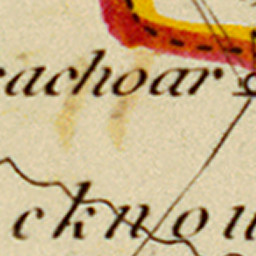 eachoar
cknou